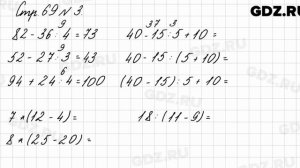 GDZ.RU
Стр. 69 № 3.
9
82 - 36 : 4 = 73
37 3
40 - 15 : 5 + 10 =
9
52 - 27 : 3 = 43
40 - 15 : (5 + 10) =
6
94 + 24 : 4 = 100
(40 - 15) : 5 + 10 =
7 * (12 - 4) =
18 : (11 - 9) =
8 * (25 - 20) =
GDZ.RU